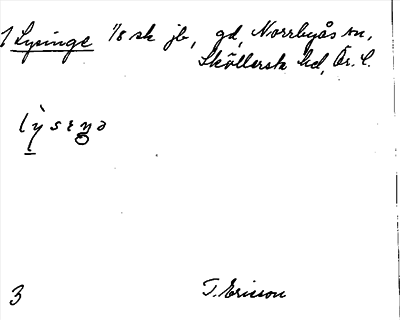 1 Lysinge 1/8 sk jb, gd, Norrbyås sn,
Sköllersta hd, Ör. l.
lỳsɪŋə
3
T. Ericson